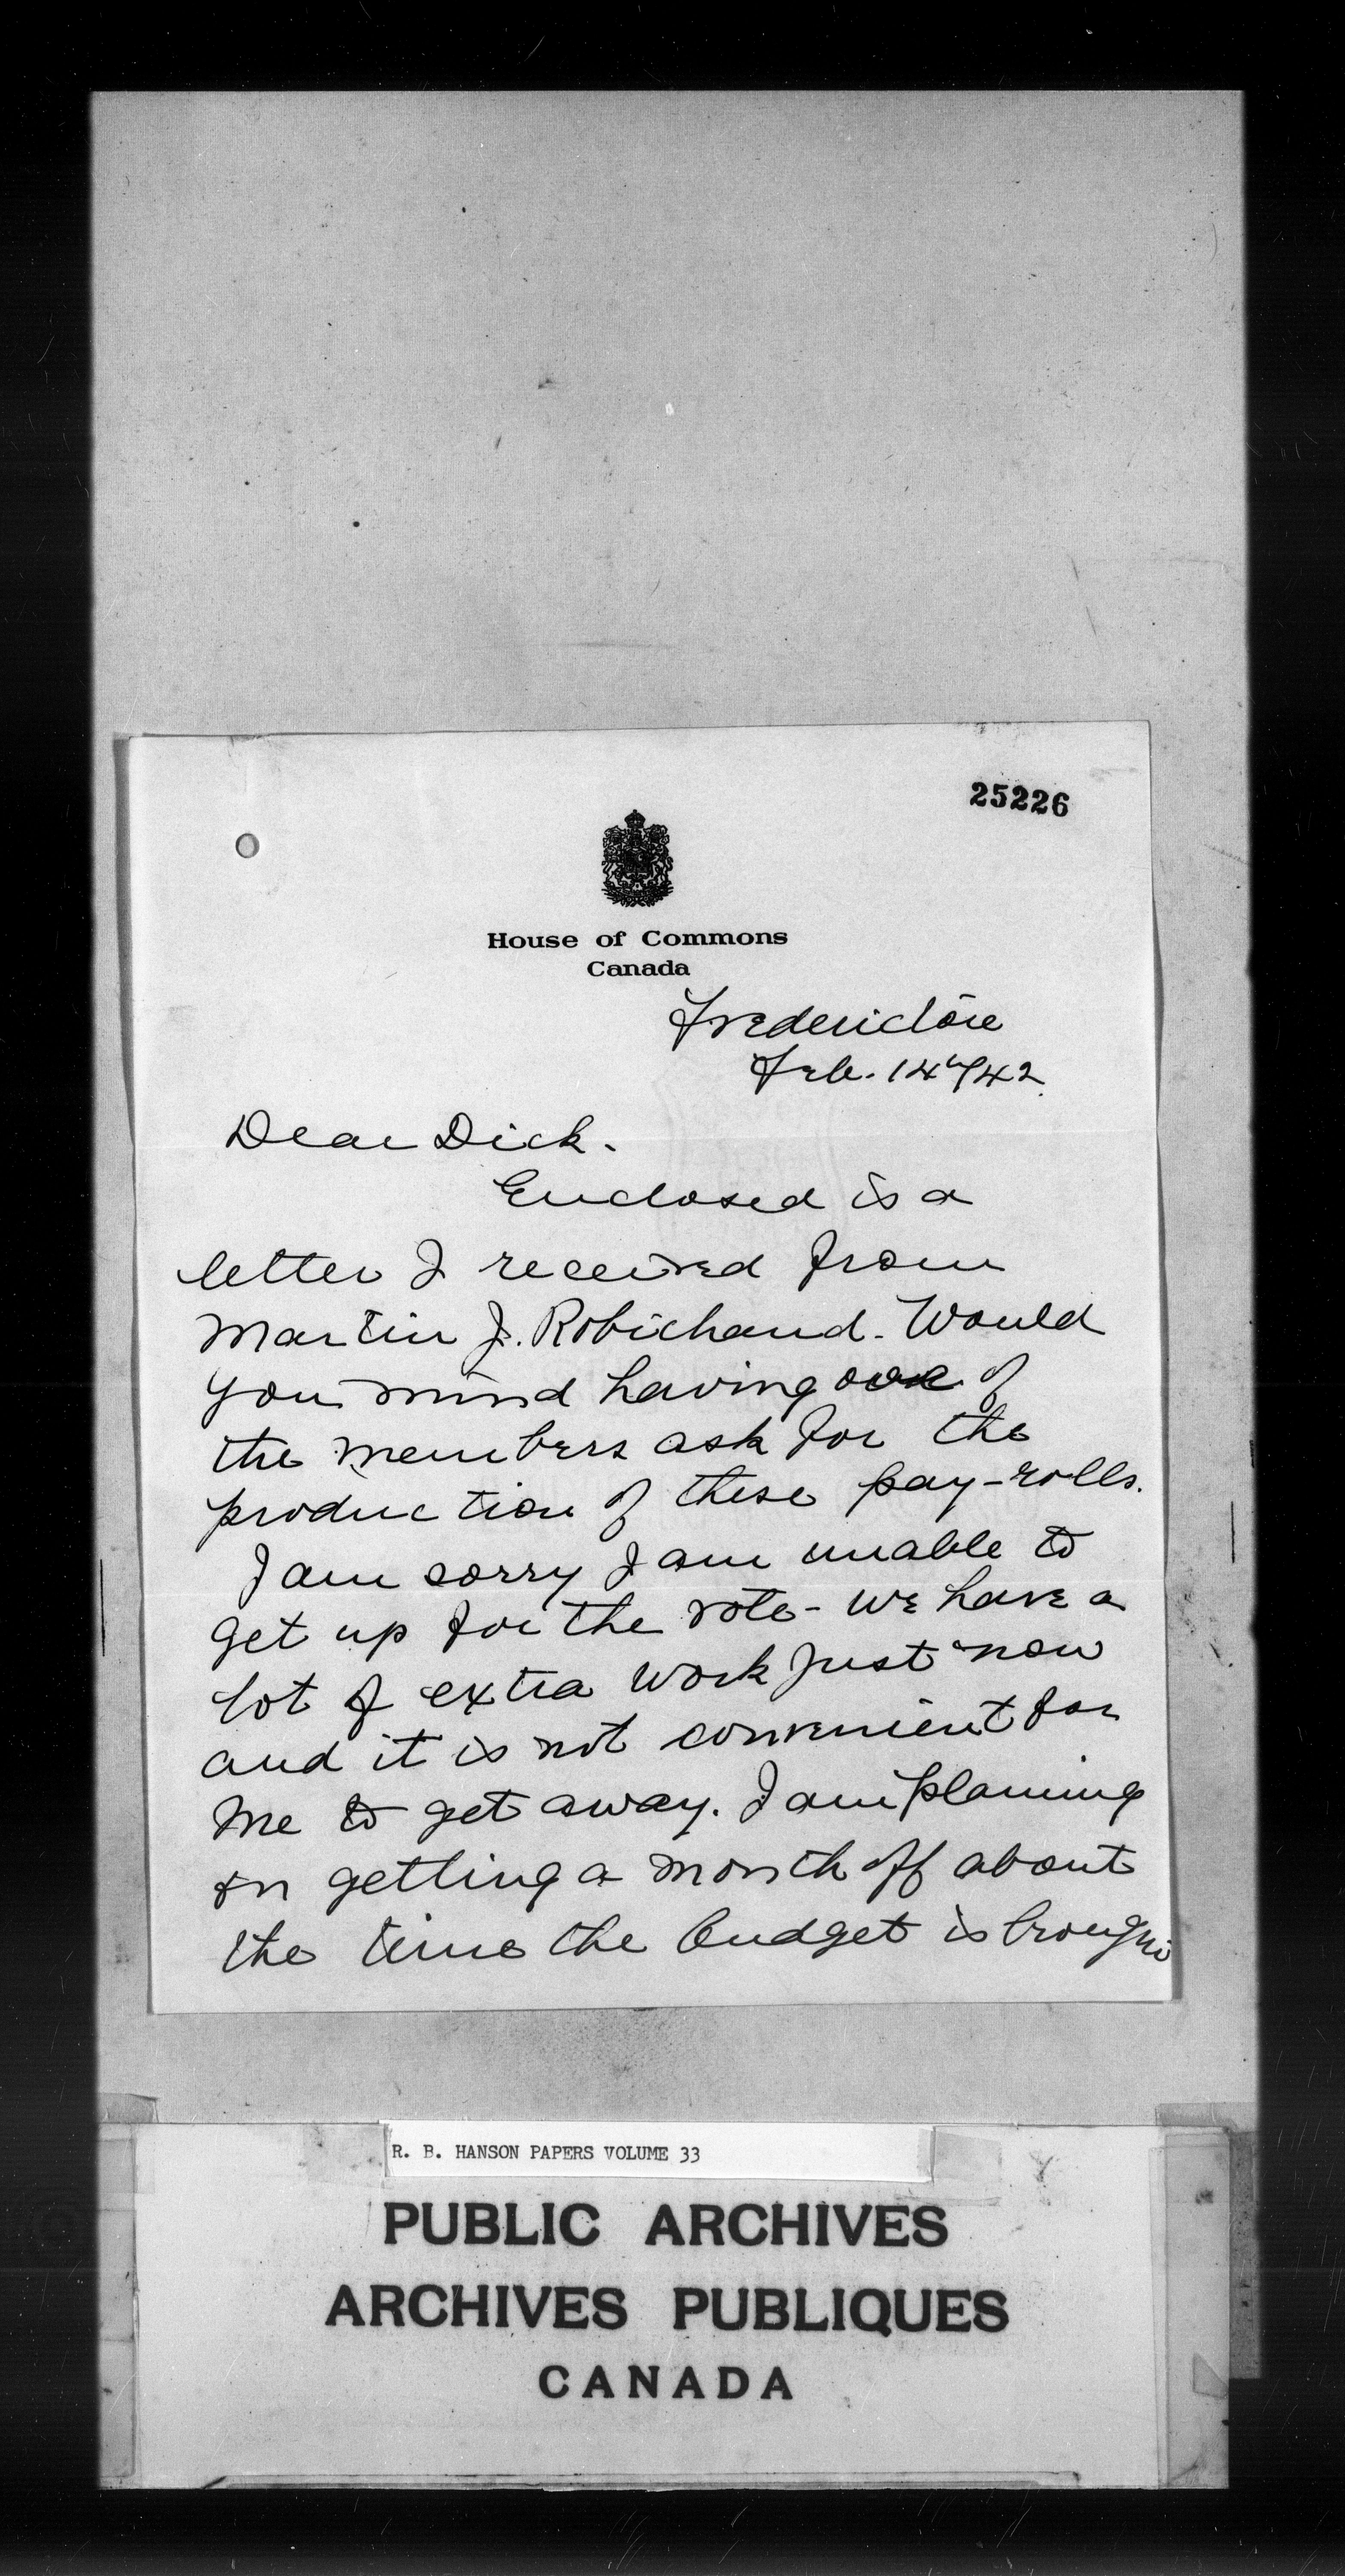 25226
House of Commons
Canada
Fredericton
Feb. 14/42.
Dear Dick.
Enclosed is a
letter I received from
Martin J. Robichaud. Would
you mind having one of
the members ask for the
production of these pay-rolls.
I am sorry I am unable to
get up for the vote - we have a
lot of extra work just now
and it is not convenient for
me to get away. I am planning
on getting a month off about
the time the budget is brought
R. B. HANSON PAPERS VOLUME 33
PUBLIC ARCHIVES
ARCHIVES PUBLIQUES
CANADA